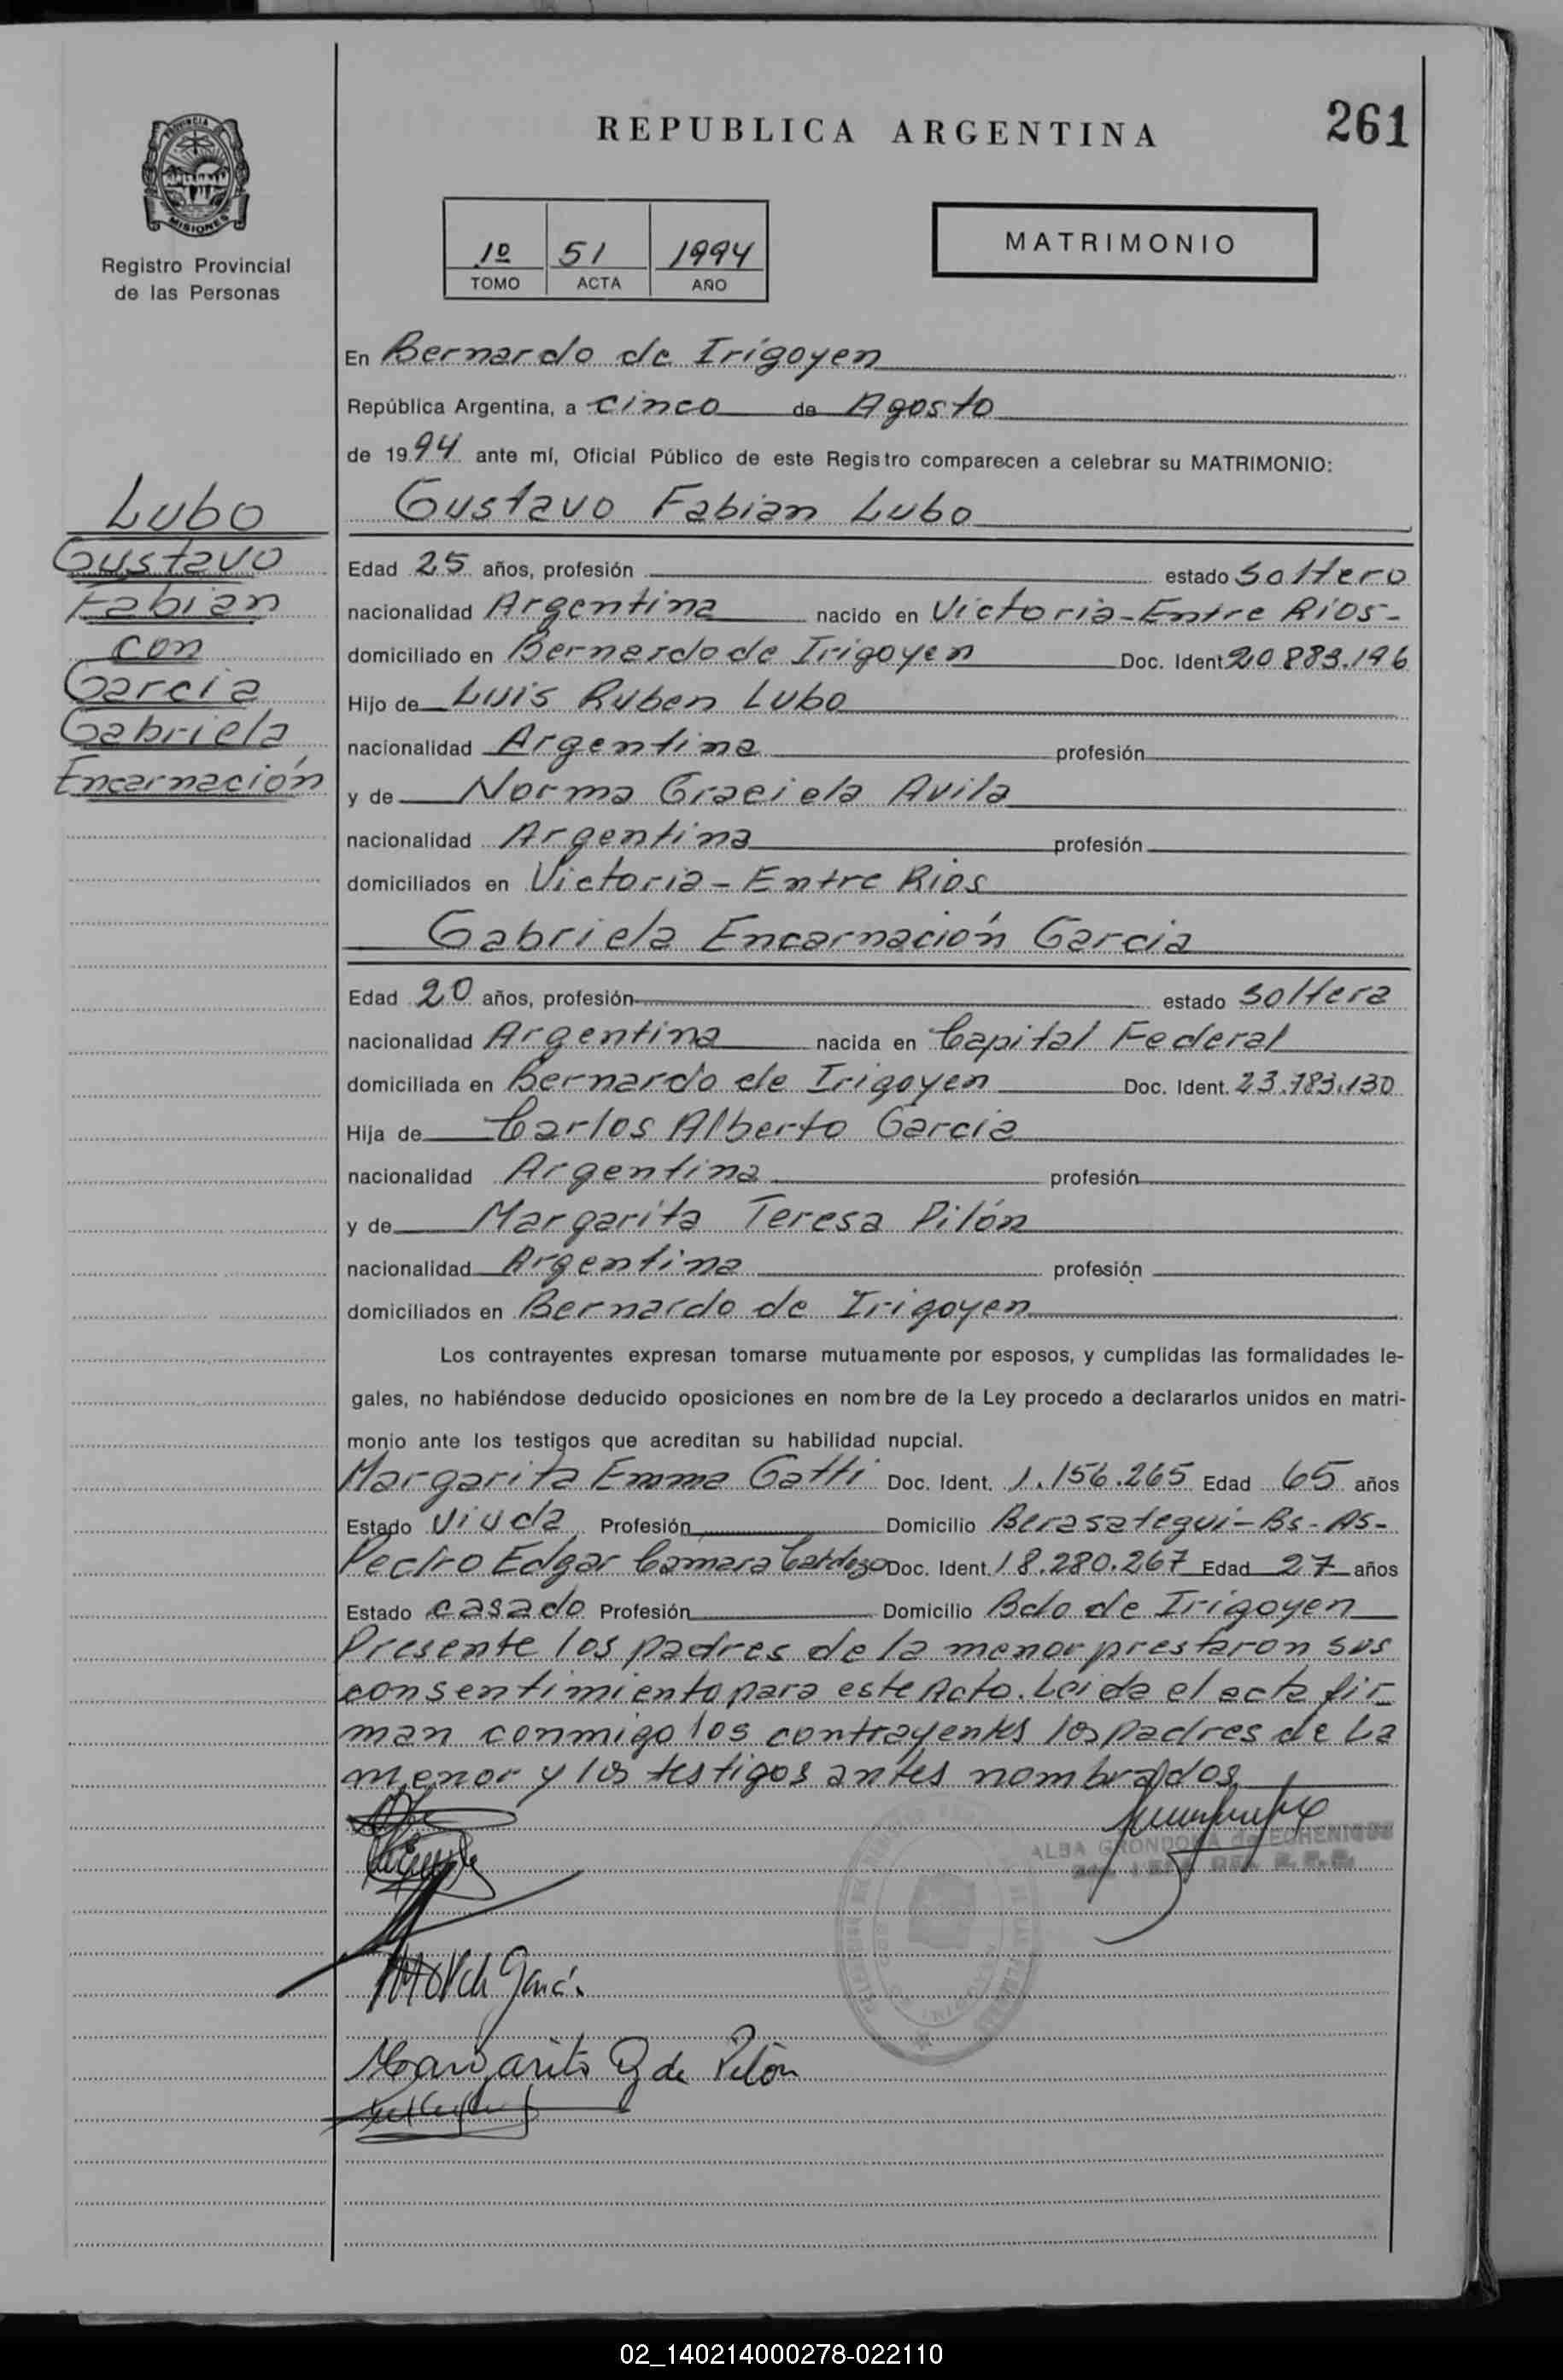 261
REPUBLICA ARGENTINA
PROVINCIA DE
MISIONES
Registro Provincial
de las Personas
1º 51 1994
TOMO ACTA AÑO
MATRIMONIO
En Bernardo de Irigoyen
República Argentina, a cinco de Agosto
de 1994 ante mí, Oficial Público de este Registro comparecen a celebrar su MATRIMONIO:
Lubo
Gustavo
Fabian
con
Garcia
Gabriela
Encarnación
Gustavo Fabian Lubo
Edad 25 años, profesión estado soltero
nacionalidad Argentina nacido en Victoria-Entre Rios-
domiciliado en Bernardo de Irigoyen Doc. Ident. 20.883.196
Hijo de Luis Ruben Lubo
nacionalidad Argentina profesión
y de Norma Graciela Avila
nacionalidad Argentina profesión
domiciliados en Victoria - Entre Rios
Gabriela Encarnación Garcia
Edad 20 años, profesión estado soltera
nacionalidad Argentina nacida en Capital Federal
domiciliada en Bernardo de Irigoyen Doc. Ident. 23.783.130
Hija de Carlos Alberto Garcia
nacionalidad Argentina profesión
y de Margarita Teresa Pilón
nacionalidad Argentina profesión
domiciliados en Bernardo de Irigoyen
Los contrayentes expresan tomarse mutuamente por esposos, y cumplidas las formalidades le-
gales, no habiéndose deducido oposiciones en nombre de la Ley procedo a declararlos unidos en matri-
monio ante los testigos que acreditan su habilidad nupcial.
Margarita Emma Gatti Doc. Ident. 1.156.265 Edad 65 años
Estado Viuda Profesión Domicilio Berasategui-Bs-As-
Pedro Edgar Camara Cardozo Doc. Ident. 18.280.267 Edad 27 años
Estado casado Profesión Domicilio Bdo de Irigoyen
Presente los padres de la menor prestaron sus
consentimiento para este Acto. Leida el acta fir-
man conmigo los contrayentes los padres de La
menor y los testigos antes nombrados
ALBA GRONDONA de ECHENIQUE
Garcia
Margarita G de Pilón
02_140214000278-022110